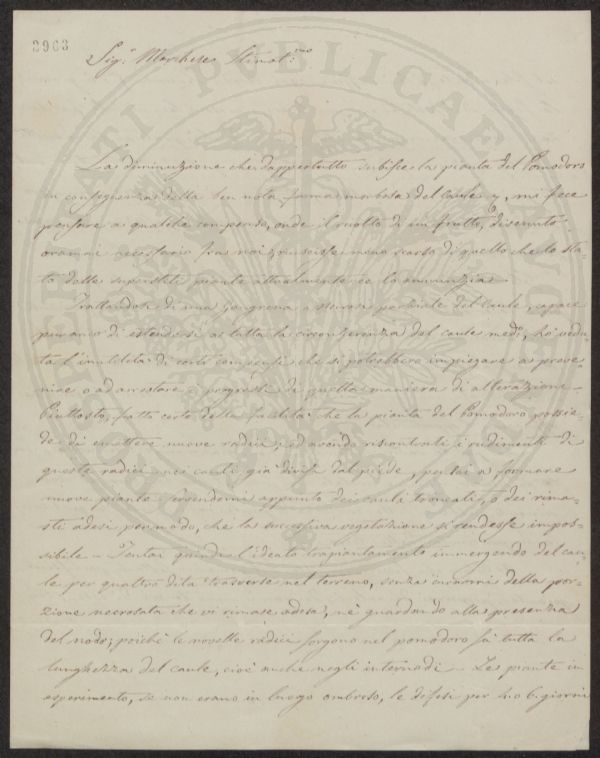 3963
Sig.r Marchese Stimat.mo
La diminuzione che dappertutto subisce la pianta del Pomodoro
in conseguenza della ben nota forma morbosa del caule, mi fece
pensare a qualche compenso, onde il ricolto di un frutto, divenuto
oramai necessario fra noi, riuscisse meno scarso di quello che lo sta-
to delle superstiti piante attualmente ce lo annunzia.
Trattandosi di una gangrena, o necrosi parziale del caule, capace
pur anco di estendersi a tutta la circonferenza del caule med.o, ho vedu-
ta l'inutilità di certi compensi che si potrebbero impiegare a preve-
nire o ad arrestare i progressi di quella maniera di alterazione.
Piuttosto, fatto certo della facilità che la pianta del Pomodoro possie-
de di emettere nuove radici, ed avendo riscontrati i rudimenti di
queste radici nei cauli già divisi dal piede, pensai a formare
nuove piante servendomi appunto dei cauli troncati, o dei rima-
sti adesi per modo, che la successiva vegetazione si rendesse impos-
sibile. Tentai quindi l'ideato trapiantamento immergendo del cau-
le per quattro dita trasverse nel terreno, senza curarmi della por-
zione necrosata che vi rimase adesa, nè guardando alla presenza
del nodo; poichè le novelle radici sorgono nel pomodoro su tutta la
lunghezza del caule, cioè anche negli internodi. Le piante in
esperimento, se non erano in luogo ombroso, le difesi per 4 o 6 giorni